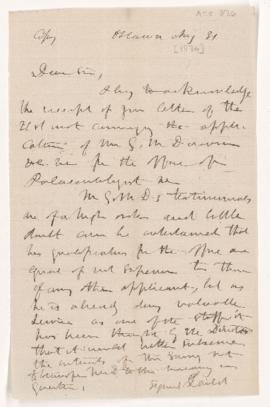 Copy Ottawa Aug 31
[1876]
Dear Sir,
I beg to acknowledge
the receipt of your letter of the
21st inst conveying the appli-
cation of Mr G. M. Dawson
for the office of
Palaeontologist
Mr G M D's testimonials
are of a high order and little
doubt can be entertained that
his qualifications for the office are
equal if not superior to those
of any other applicant, but as
he is already doing valuable
service as one of the staff it
has been thought by the Director
that it would better subserve
the interests of the Survey not
to transfer him to the
question.
Signed